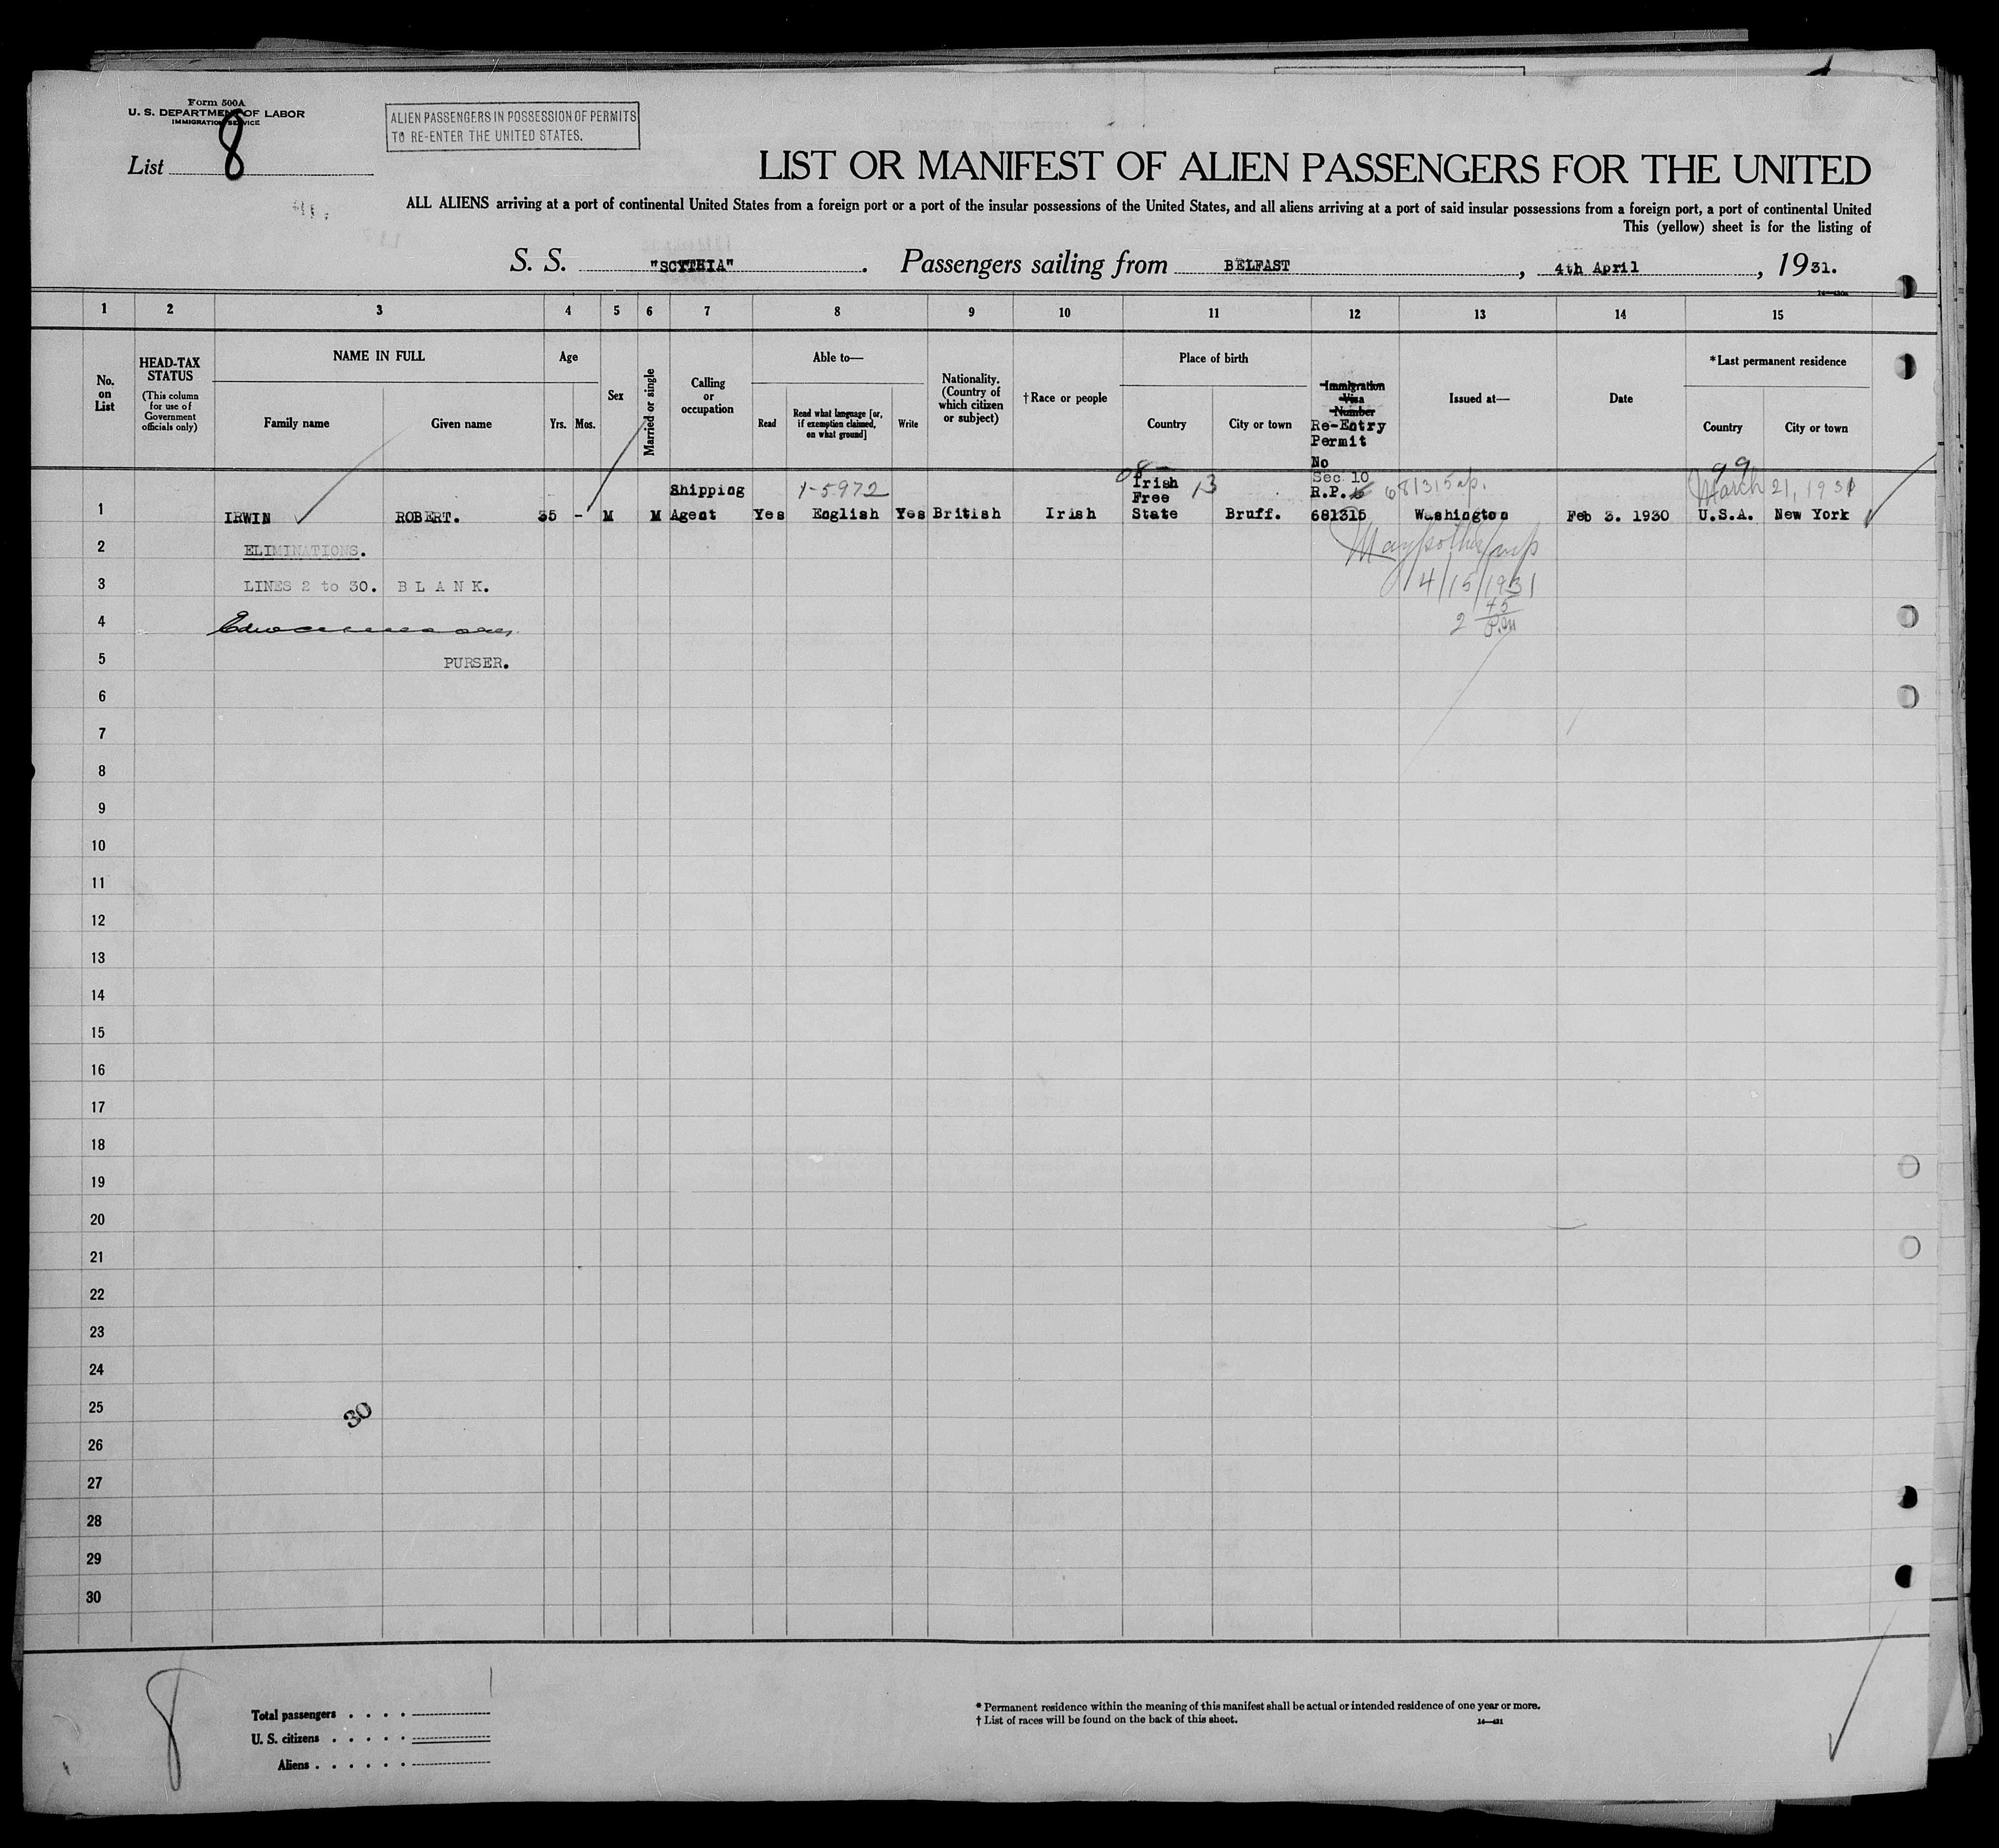 Form 500A
U. S. DEPARTMENT OF LABOR
IMMIGRATION SERVICE
ALIEN PASSENGERS IN POSSESSION OF PERMITS
TO RE-ENTER THE UNITED STATES.
List 8
LIST OR MANIFEST OF ALIEN PASSENGERS FOR THE UNITED
ALL ALIENS arriving at a port of continental United States from a foreign port or a port of the insular possessions of the United States, and all aliens arriving at a port of said insular possessions from a foreign port, a port of continental United
This (yellow) sheet is for the listing of
S. S. "SCYTHIA" . Passengers sailing from BELFAST , 4th April , 1931.
1 2 3 4 5 6 7 8 9 10 11 12 13 14 15
No. on List
HEAD-TAX STATUS
(This column for use of Government officials only)
NAME IN FULL
Family name Given name
Age
Yrs. Mos.
Sex
Married or single
Calling or occupation
Able to—
Read
Read what language [or, if exemption claimed, on what ground]
Write
Nationality. (Country of which citizen or subject)
†Race or people
Place of birth
Country City or town
Immigration Visa Number
Re-Entry
Permit
No
Issued at—
Date
*Last permanent residence
Country City or town
08 99
Shipping 1-5972 Irish 13 Sec 10 March 21, 1931
Free R.P. 681315
1 IRWIN ROBERT. 35 - M M Agent Yes English Yes British Irish State Bruff. 681315 Washington Feb 3. 1930 U.S.A. New York
2 ELIMINATIONS.
3 LINES 2 to 30. B L A N K. 4/15/1931
4 2 45 P.M
5 PURSER.
6
7
8
9
10
11
12
13
14
15
16
17
18
19
20
21
22
23
24
25
30
26
27
28
29
30
8
1
Total passengers . . . .
U. S. citizens . . . . .
Aliens . . . . . .
* Permanent residence within the meaning of this manifest shall be actual or intended residence of one year or more.
† List of races will be found on the back of this sheet.